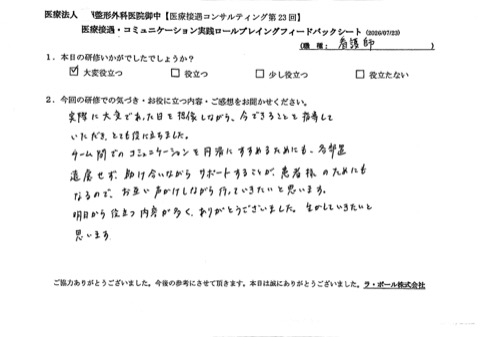 医療法人 整形外科医院御中【医療接遇コンサルティング第23回】
医療接遇・コミュニケーション実践ロールプレイングフィードバックシート (2026/07/23)
(職種：看護師)
1．本日の研修いかがでしたでしょうか？
☑ 大変役立つ □ 役立つ □ 少し役立つ □ 役立たない
2．今回の研修での気づき・お役に立つ内容・ご感想をお聞かせください。
実際に大変であった日を想像しながら、今できることを指導して
いただき、とても役に立ちました。
チーム間でのコミュニケーションを円滑にすすめるためにも、各部署
遠慮せず助け合いながらサポートすることが、患者様のためにも
なるので、お互い声がけしながら行っていきたいと思います。
明日から役立つ内容が多く、ありがとうございました。生かしていきたいと
思います
ご協力ありがとうございました。今後の参考にさせて頂きます。本日は誠にありがとうございました。ラ・ポール株式会社